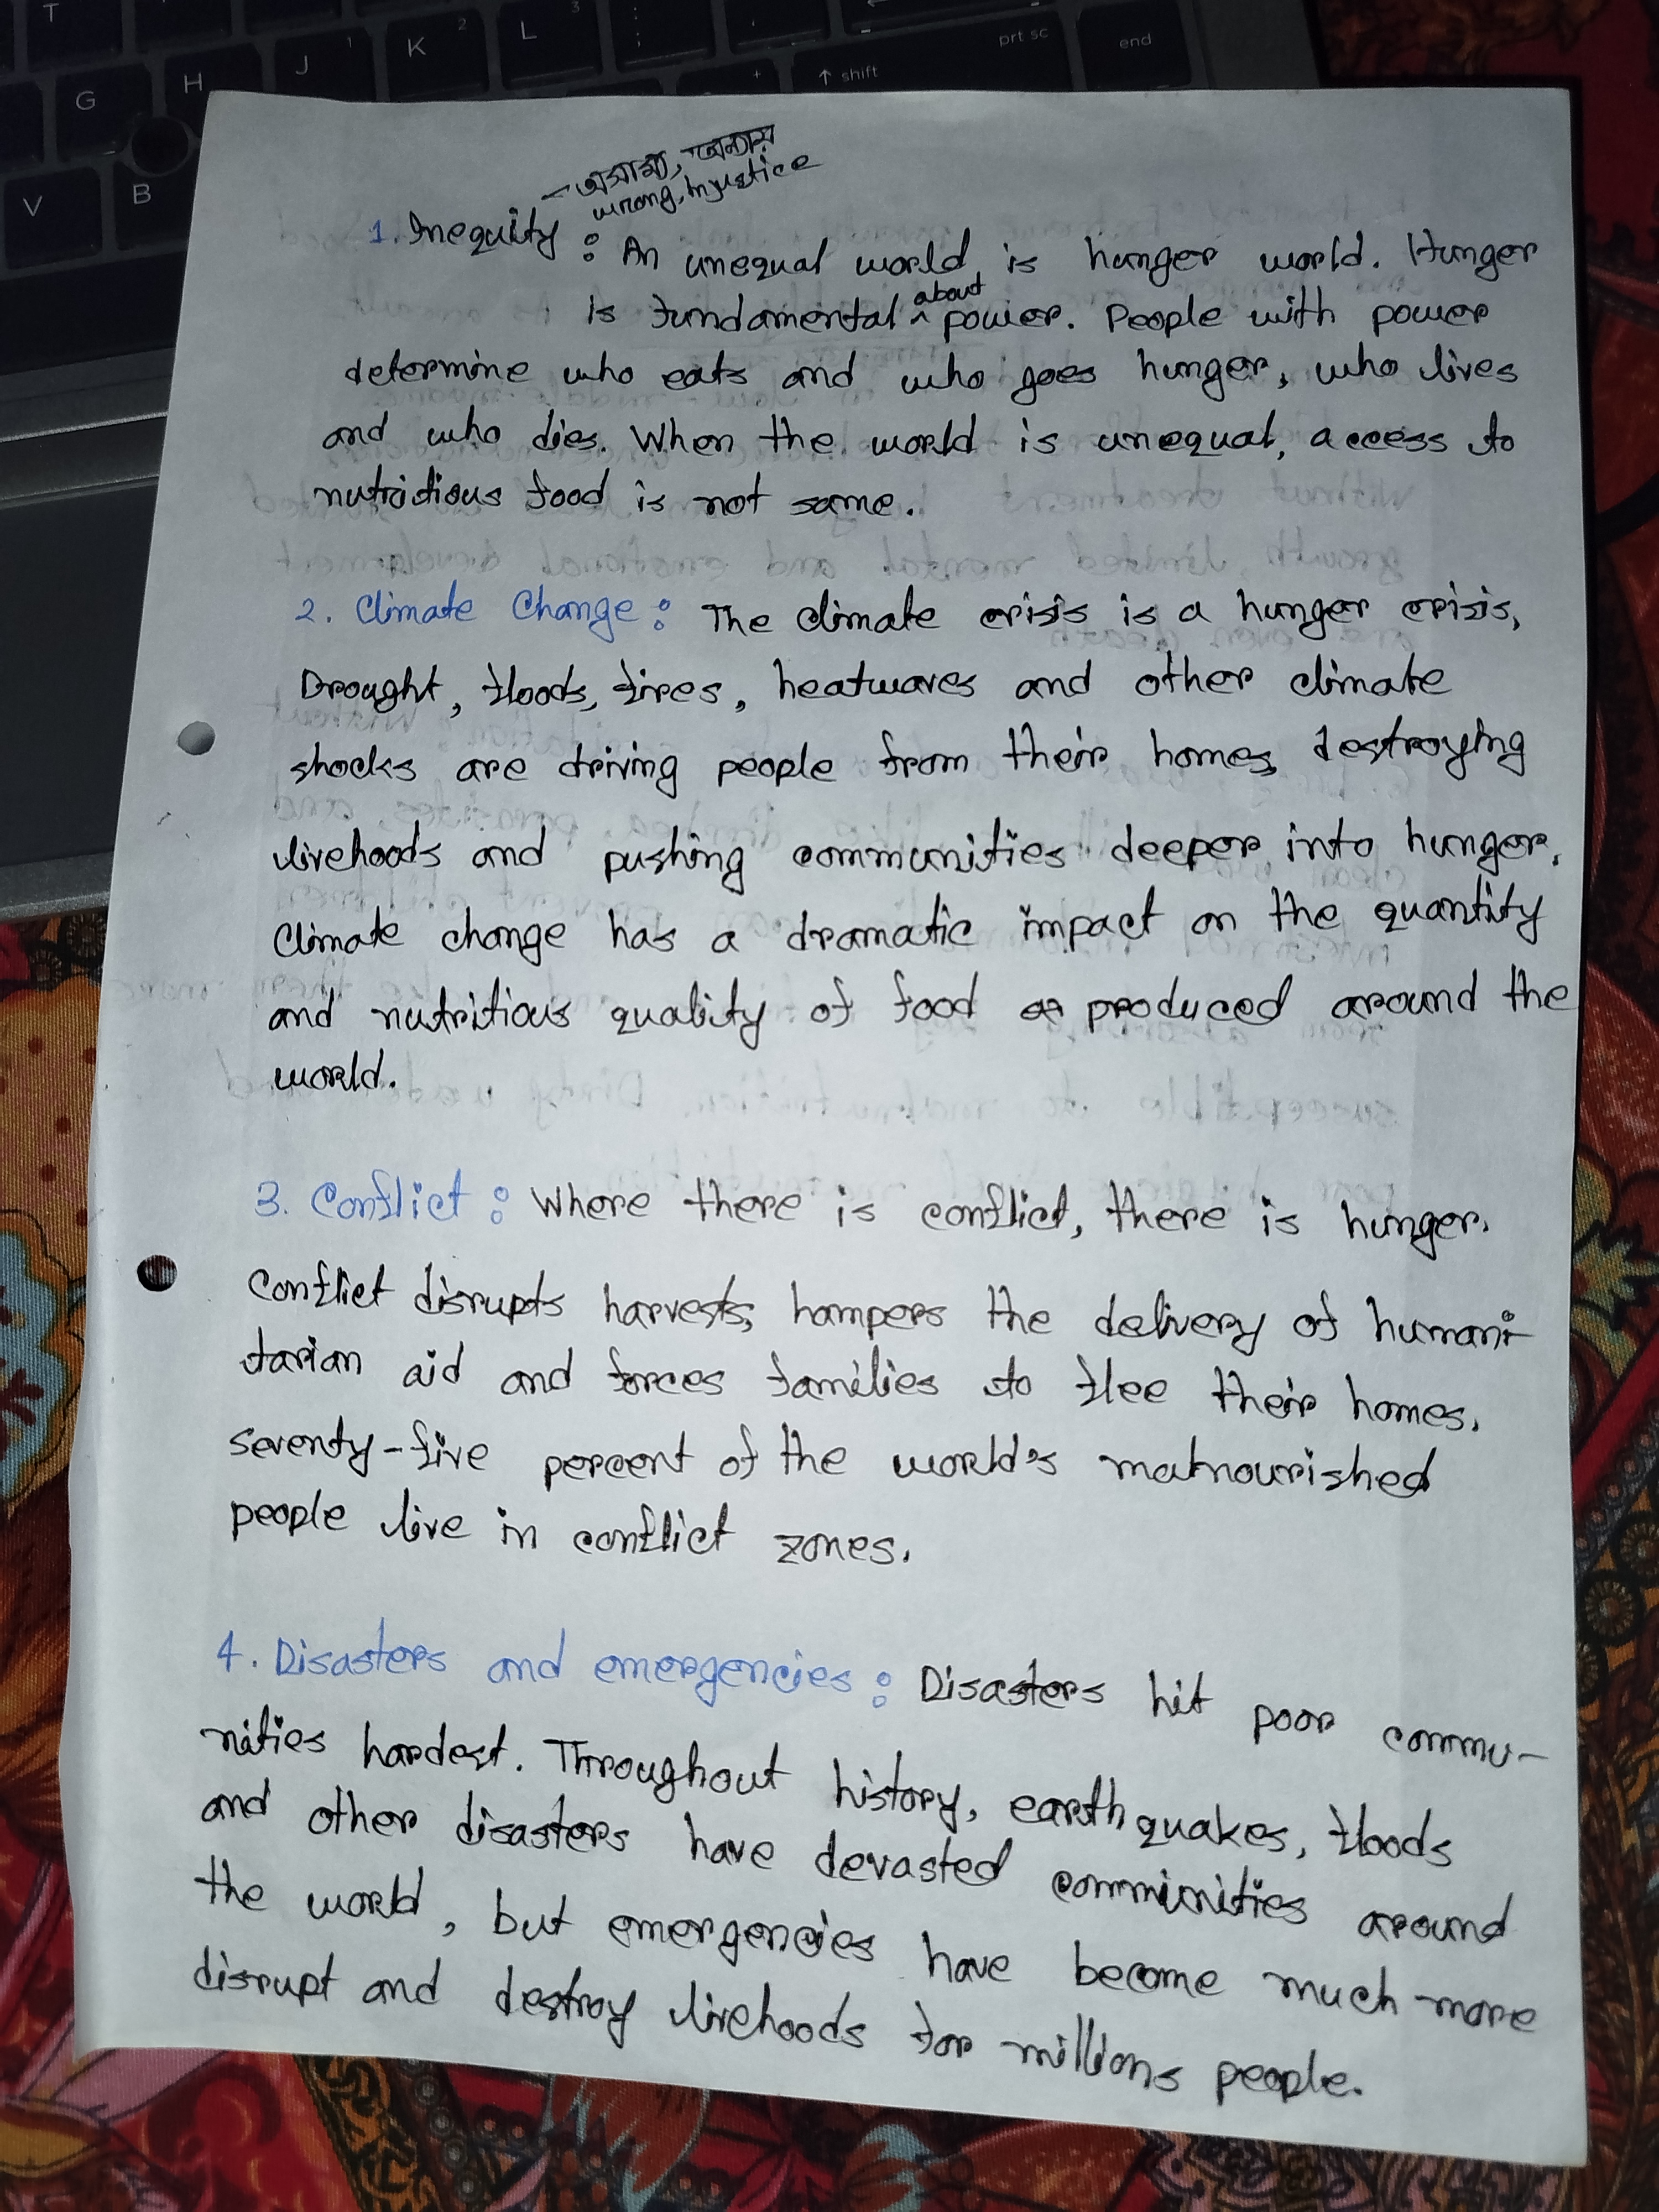 T
G H J K 2 L 3 ; prt sc end
1
V B ↑ shift
– অসাম্য, অন্যায়
wrong, Injustice
1. Inequity : An unequal world, is hunger world. Hunger
is fundamental ^ about power. People with power
determine who eats and who goes hunger, who lives
and who dies. When the world is unequal, access to
nutritious food is not same.
2. Climate Change : The climate crisis is a hunger crisis,
Drought, floods, fires, heatwaves and other climate
shocks are driving people from their homes, destroying
livehoods and pushing communities deeper into hunger.
Climate change has a dramatic impact on the quantity
and nutritious quality of food produced around the
world.
3. Conflict : Where there is conflict, there is hunger.
Conflict disrupts harvests, hampers the delivery of humani-
tarian aid and forces families to flee their homes.
Seventy-five percent of the world's malnourished
people live in conflict zones.
4. Disasters and emergencies : Disasters hit poor commu-
nities hardest. Throughout history, earthquakes, floods
and other disasters have devasted comminities around
the world, but emergencies have become much more
disrupt and destroy livehoods for millions people.